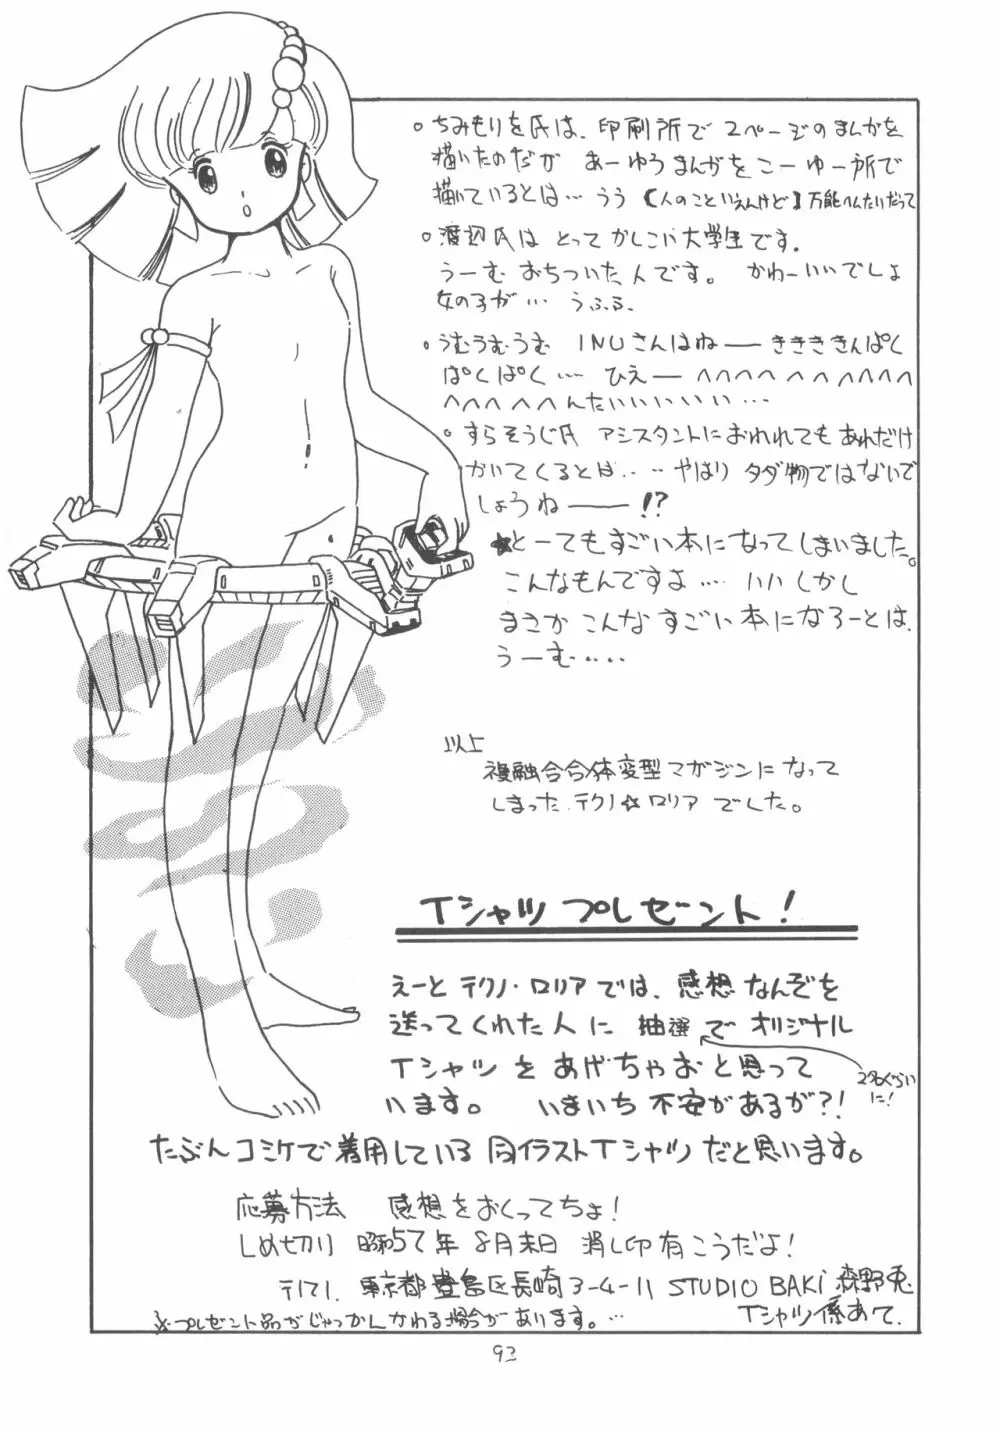 ・ちみもりを氏は、印刷所で2ページのまんがを
描いたのだが あーゆうまんがをこーゆー所で
描いているとは… うう 【人のこといえんけど】万能ヘんたいだって
・渡辺氏は とってかしこい大学生です。
うーむ おちついた人です。 かわーいいでしょ
女の子が… うふる.
・うむうむうむ INUさんはねー きききききんぱく
ぱくぱく… ひえー ヘヘヘヘヘヘヘヘヘヘ
ヘヘヘヘヘんたいいいいいい…
・すらそうじ氏 アシスタントにおわれてもあれだけ
かいてくるとは… …やはり タダ物ではないで
しょうねー!?
★とーてもすごい本になってしまいました。
こんなもんですよ… ハハ しかし
まさか こんなすごい本になろーとは.
うーむ‥‥
以上
複融合合体変型マガジンになって
しまった テクノ☆ロリア でした。
Tシャツ プレゼーント!
えーと テクノ・ロリアでは、感想なんぞを
送ってくれた人に 抽選で オリジナル
Tシャツをあげちゃおと思って
います。 いまいち 不安があるが?!
2名ぐらい
に!
たぶんコミケで着用している 同イラストTシャツだと思います。
応募方法 感想をおくってちょ!
しめ切り 昭和57年 8月末日 消し印有こうだよ!
〒171. 東京都豊島区長崎3-4-11 STUDIO BAKI 森野兎
Tシャツ係あて.
※プレゼント品がじゃっかんかわる場合があります。…
93